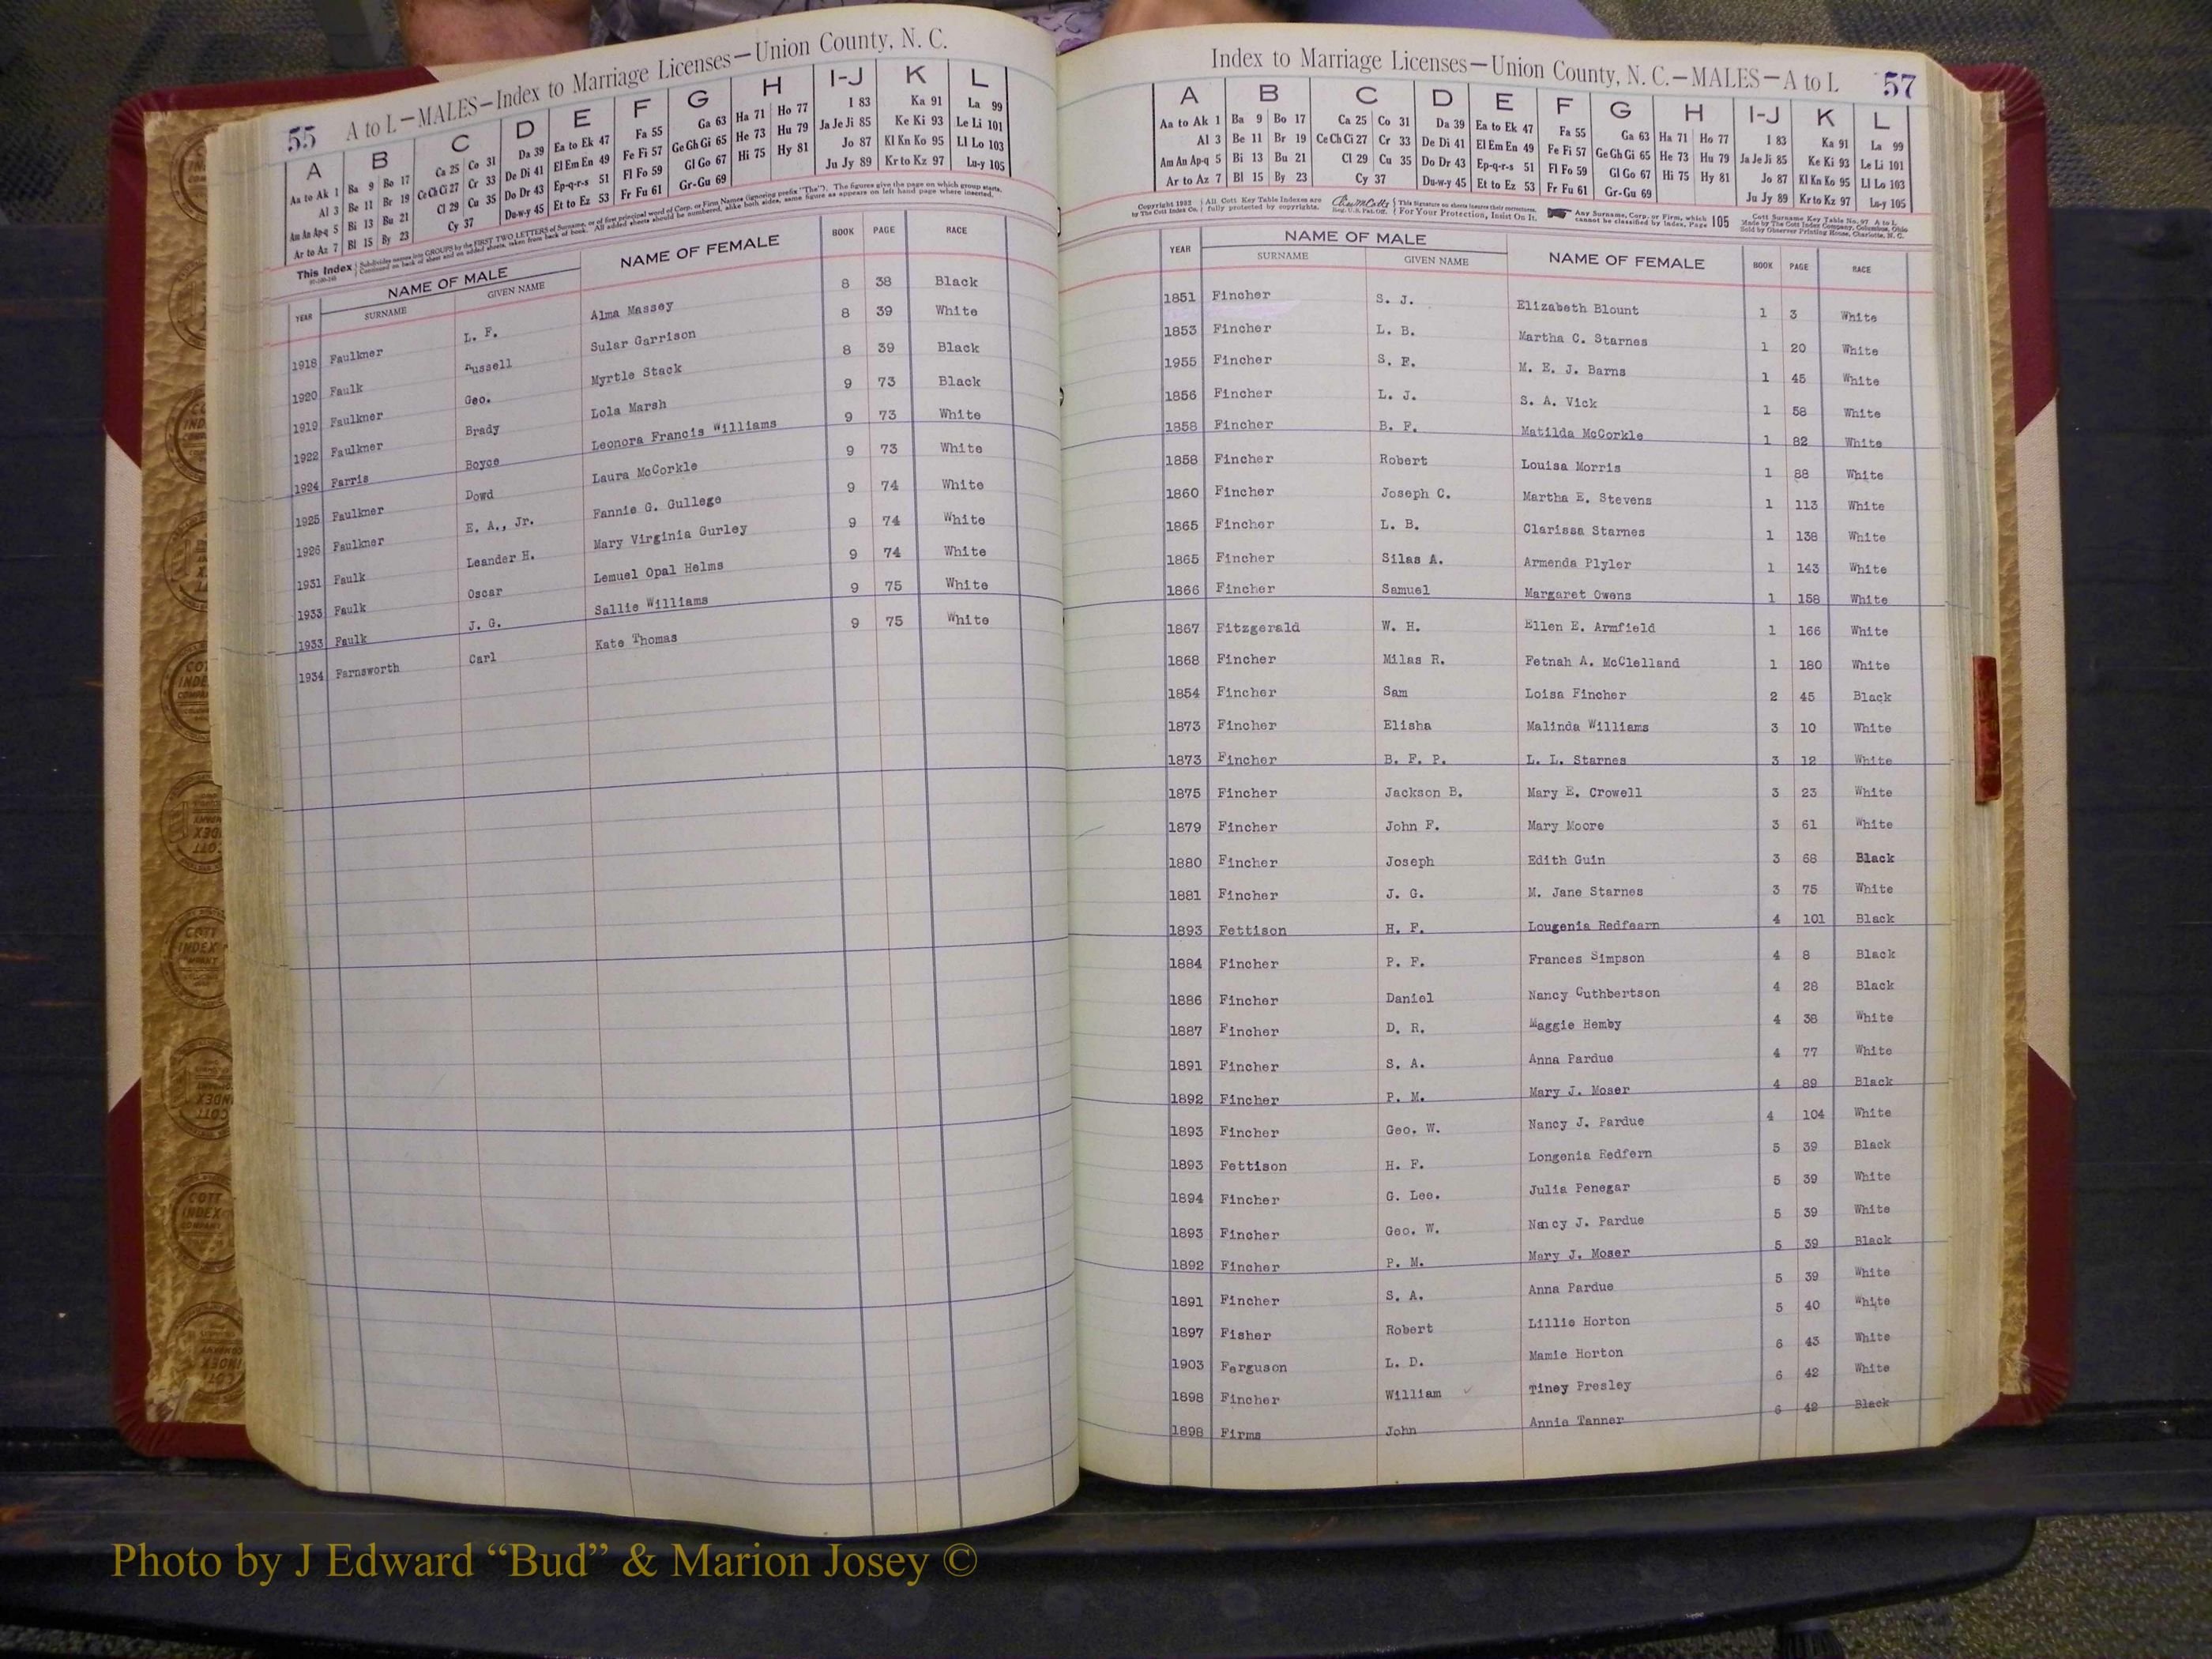 55 A to L—MALES—Index to Marriage Licenses—Union County, N. C.
A B C D E F G H I-J K L
Aa to Ak 1 Ba 9 Bo 17 Ca 25 Co 31 Da 39 Ea to Ek 47 Fa 55 Ga 63 Ha 71 Ho 77 I 83 Ka 91 La 99
Al 3 Be 11 Br 19 Ce Ch Ci 27 Cr 33 De Di 41 El Em En 49 Fe Fi 57 Ge Gh Gi 65 He 73 Hu 79 Ja Je Ji 85 Ke Ki 93 Le Li 101
Am An Ap-q 5 Bi 13 Bu 21 Cl 29 Cu 35 Do Dr 43 Ep-q-r-s 51 Fl Fo 59 Gl Go 67 Hi 75 Hy 81 Jo 87 Kl Kn Ko 95 Ll Lo 103
Ar to Az 7 Bl 15 By 23 Cy 37 Du-w-y 45 Et to Ez 53 Fr Fu 61 Gr-Gu 69 Ju Jy 89 Kr to Kz 97 Lu-y 105
This Index Subdivides names into GROUPS by the FIRST TWO LETTERS of Surname, or of first principal word of Corp. or Firm Names (ignoring prefix "The"). The figures give the page on which group starts.
Continued on back of sheet and on added sheets, taken from back of book. All added sheets should be numbered, alike both sides, same figure as appears on left hand page where inserted.
YEAR NAME OF MALE NAME OF FEMALE BOOK PAGE RACE
SURNAME GIVEN NAME
1918 Faulkner L. F. Alma Massey 8 38 Black
1920 Faulk Russell Sular Garrison 8 39 White
1919 Faulkner Geo. Myrtle Stack 8 39 Black
1922 Faulkner Brady Lola Marsh 9 73 Black
1924 Farris Boyce Leonora Francis Williams 9 73 White
1925 Faulkner Dowd Laura McCorkle 9 73 White
1926 Faulkner E. A., Jr. Fannie G. Gullege 9 74 White
1931 Faulk Leander H. Mary Virginia Gurley 9 74 White
1933 Faulk Oscar Lemuel Opal Helms 9 74 White
1933 Faulk J. G. Sallie Williams 9 75 White
1934 Farnsworth Carl Kate Thomas 9 75 White
Index to Marriage Licenses—Union County, N. C.—MALES—A to L 57
A B C D E F G H I-J K L
Aa to Ak 1 Ba 9 Bo 17 Ca 25 Co 31 Da 39 Ea to Ek 47 Fa 55 Ga 63 Ha 71 Ho 77 I 83 Ka 91 La 99
Al 3 Be 11 Br 19 Ce Ch Ci 27 Cr 33 De Di 41 El Em En 49 Fe Fi 57 Ge Gh Gi 65 He 73 Hu 79 Ja Je Ji 85 Ke Ki 93 Le Li 101
Am An Ap-q 5 Bi 13 Bu 21 Cl 29 Cu 35 Do Dr 43 Ep-q-r-s 51 Fl Fo 59 Gl Go 67 Hi 75 Hy 81 Jo 87 Kl Kn Ko 95 Ll Lo 103
Ar to Az 7 Bl 15 By 23 Cy 37 Du-w-y 45 Et to Ez 53 Fr Fu 61 Gr-Gu 69 Ju Jy 89 Kr to Kz 97 Lu-y 105
Copyright All Cott Key Table Indexes are This Signature on sheets insures their correctness. Any Surname, Corp. or Firm, which 105 Cott Surname Key Table No. 97 A to L
by The Cott Index Co. fully protected by copyrights. Reg. U.S. Pat. Off. For Your Protection, Insist On It. cannot be classified by Index, Page Made by The Cott Index Company, Columbus, Ohio
Sold by Observer Printing House, Charlotte, N. C.
YEAR NAME OF MALE NAME OF FEMALE BOOK PAGE RACE
SURNAME GIVEN NAME
1851 Fincher S. J. Elizabeth Blount 1 3 White
1853 Fincher L. B. Martha C. Starnes 1 20 White
1955 Fincher S. E. M. E. J. Barns 1 45 White
1856 Fincher L. J. S. A. Vick 1 58 White
1858 Fincher B. F. Matilda McCorkle 1 82 White
1858 Fincher Robert Louisa Morris 1 88 White
1860 Fincher Joseph C. Martha E. Stevens 1 113 White
1865 Fincher L. B. Clarissa Starnes 1 138 White
1865 Fincher Silas A. Armenda Plyler 1 143 White
1866 Fincher Samuel Margaret Owens 1 158 White
1867 Fitzgerald W. H. Ellen E. Armfield 1 166 White
1868 Fincher Milas R. Fetnah A. McClelland 1 180 White
1854 Fincher Sam Loisa Fincher 2 45 Black
1873 Fincher Elisha Malinda Williams 3 10 White
1873 Fincher B. F. P. L. L. Starnes 3 12 White
1875 Fincher Jackson B. Mary E. Crowell 3 23 White
1879 Fincher John F. Mary Moore 3 61 White
1880 Fincher Joseph Edith Guin 3 68 Black
1881 Fincher J. G. M. Jane Starnes 3 75 White
1893 Fettison H. F. Lougenia Redfearn 4 101 Black
1884 Fincher P. F. Frances Simpson 4 8 Black
1886 Fincher Daniel Nancy Cuthbertson 4 28 Black
1887 Fincher D. R. Maggie Hemby 4 38 White
1891 Fincher S. A. Anna Pardue 4 77 White
1892 Fincher P. M. Mary J. Moser 4 89 Black
1893 Fincher Geo. W. Nancy J. Pardue 4 104 White
1893 Fettison H. F. Longenia Redfern 5 39 Black
1894 Fincher G. Lee. Julia Penegar 5 39 White
1893 Fincher Geo. W. Nancy J. Pardue 5 39 White
1892 Fincher P. M. Mary J. Moser 5 39 Black
1891 Fincher S. A. Anna Pardue 5 39 White
1897 Fisher Robert Lillie Horton 5 40 White
1903 Ferguson L. D. Mamie Horton 6 43 White
1898 Fincher William Tiney Presley 6 42 White
1898 Firms John Annie Tanner 6 42 Black
Photo by J Edward “Bud” & Marion Josey ©